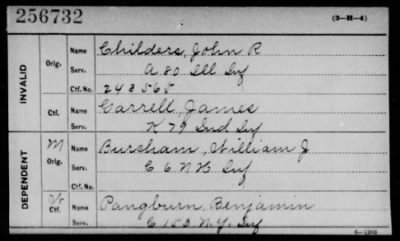 256732 (3-H-4)
INVALID
Orig. Name Childers, John R
Serv. A 80 Ill Inf
Ctf. No. 248565
Ctf. Name Garrell, James
Serv. K 79 Ind Inf
DEPENDENT
M Orig. Name Burcham, William J
Serv. C 6 N B Inf
Ctf. Name Pangburn, Benjamin
Serv. C 153 N.Y. Inf